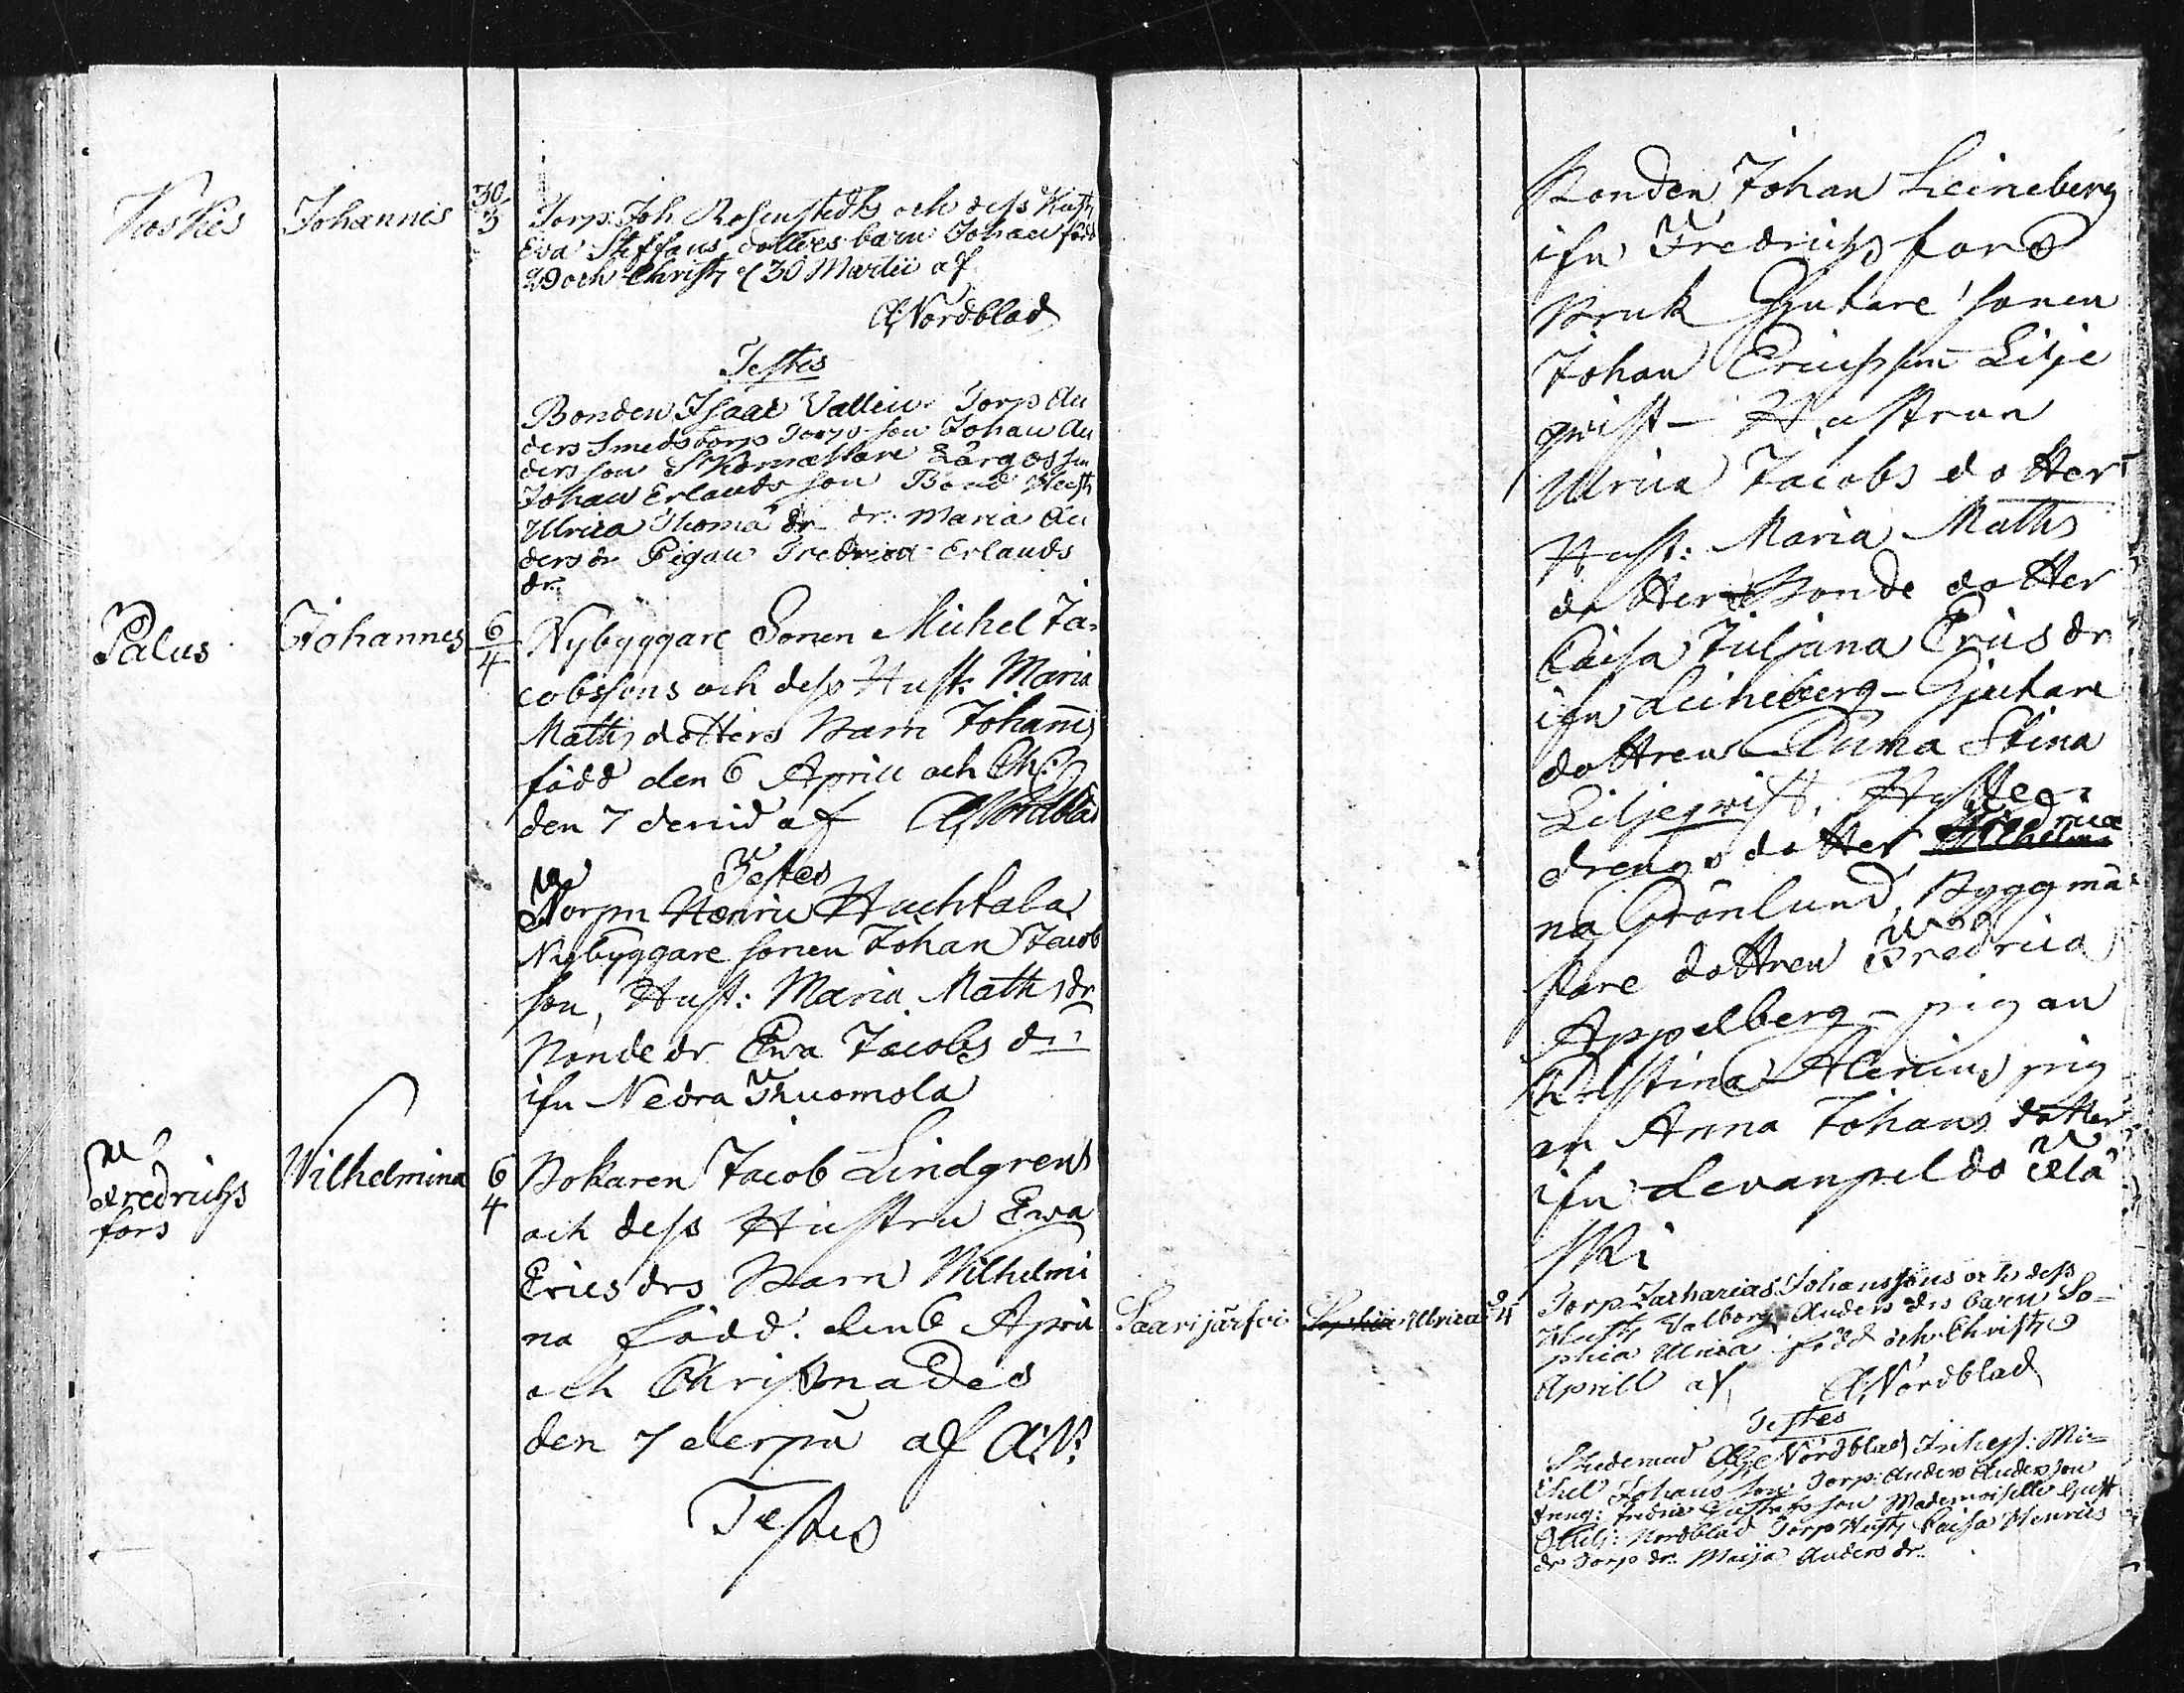 Koskis Johannis 30/3 Torp: Joh Rosenstedts och dess Hust
Eva Steffans dotters barn Johan född
29 och Christ d 30 Martii af
CNordblad
Testes
Bonden Isaac Vallin Torp An
ders Smedstorp Torpson Johan An
dersson Skomakare Lärgosen
Johan Erlandsson Bond Hust
Ulrica Thoma dr dr: Maria An
dersdr Pigan Fredrica Erlands
dr:
Palus Johannes 6/4 Nybyggare Sonen Michel Ja-
cobssons och dess Hust: Maria
Maths dotters Barn Johannes
född den 6 Aprill och Ch:
den 7 denid af CNordblad
Testes
Torpn Henric Huchtala
Nybyggare sonen Johan Jacob
son, Hust: Maria Maths dr
Bonde dr Ewa Jacobs dr
ifn Nedra Thuomola
Fredrichs Wilhelmina 6/4 Bokaren Jacob Lindgrens
fors och dess Hustru Ewa
Erics drs Barn Wilhelmi
na född. den 6 Apri
och Christnades
den 7 derpå af C:N:
Testes
Bonden Johan Leineberg
ifn Fredrichsfors
Bruk Gjutare sonen
Johan Ericsson Lilje
qvist - Hustrun
Ulrica Jacobs dotter
Hust: Maria Maths
dotter Bonde dotter
Caisa Juljana Erics dr
ifn Leineberg - Gjutare
dottren Anna Stina
Liljeqwist, Hytte-
drengs dotter Fredrica
na Grönlund, Byggmä
stare dottren Fredrica
Appelberg - pigan
Christina Alenius pig
an Anna Johans dotter
ifn
ski
Saarijärfvi Sophia Ulrica 9/4 Torp Zacharias Johanssons och dess
Hust Valborg Anders drs barn So-
phia Ulrica född och Christ 9
Aprill af CNordblad
Testes
Studerand Nordblad, Inhyss: Mi-
chel Johans son Torp: Anders Andersson
dreng: Fredric Gustafsson Mademoiselle Gust
Nordblad Torp Hust Caisa Henrics
dr Torp dr: Maija Anders dr.